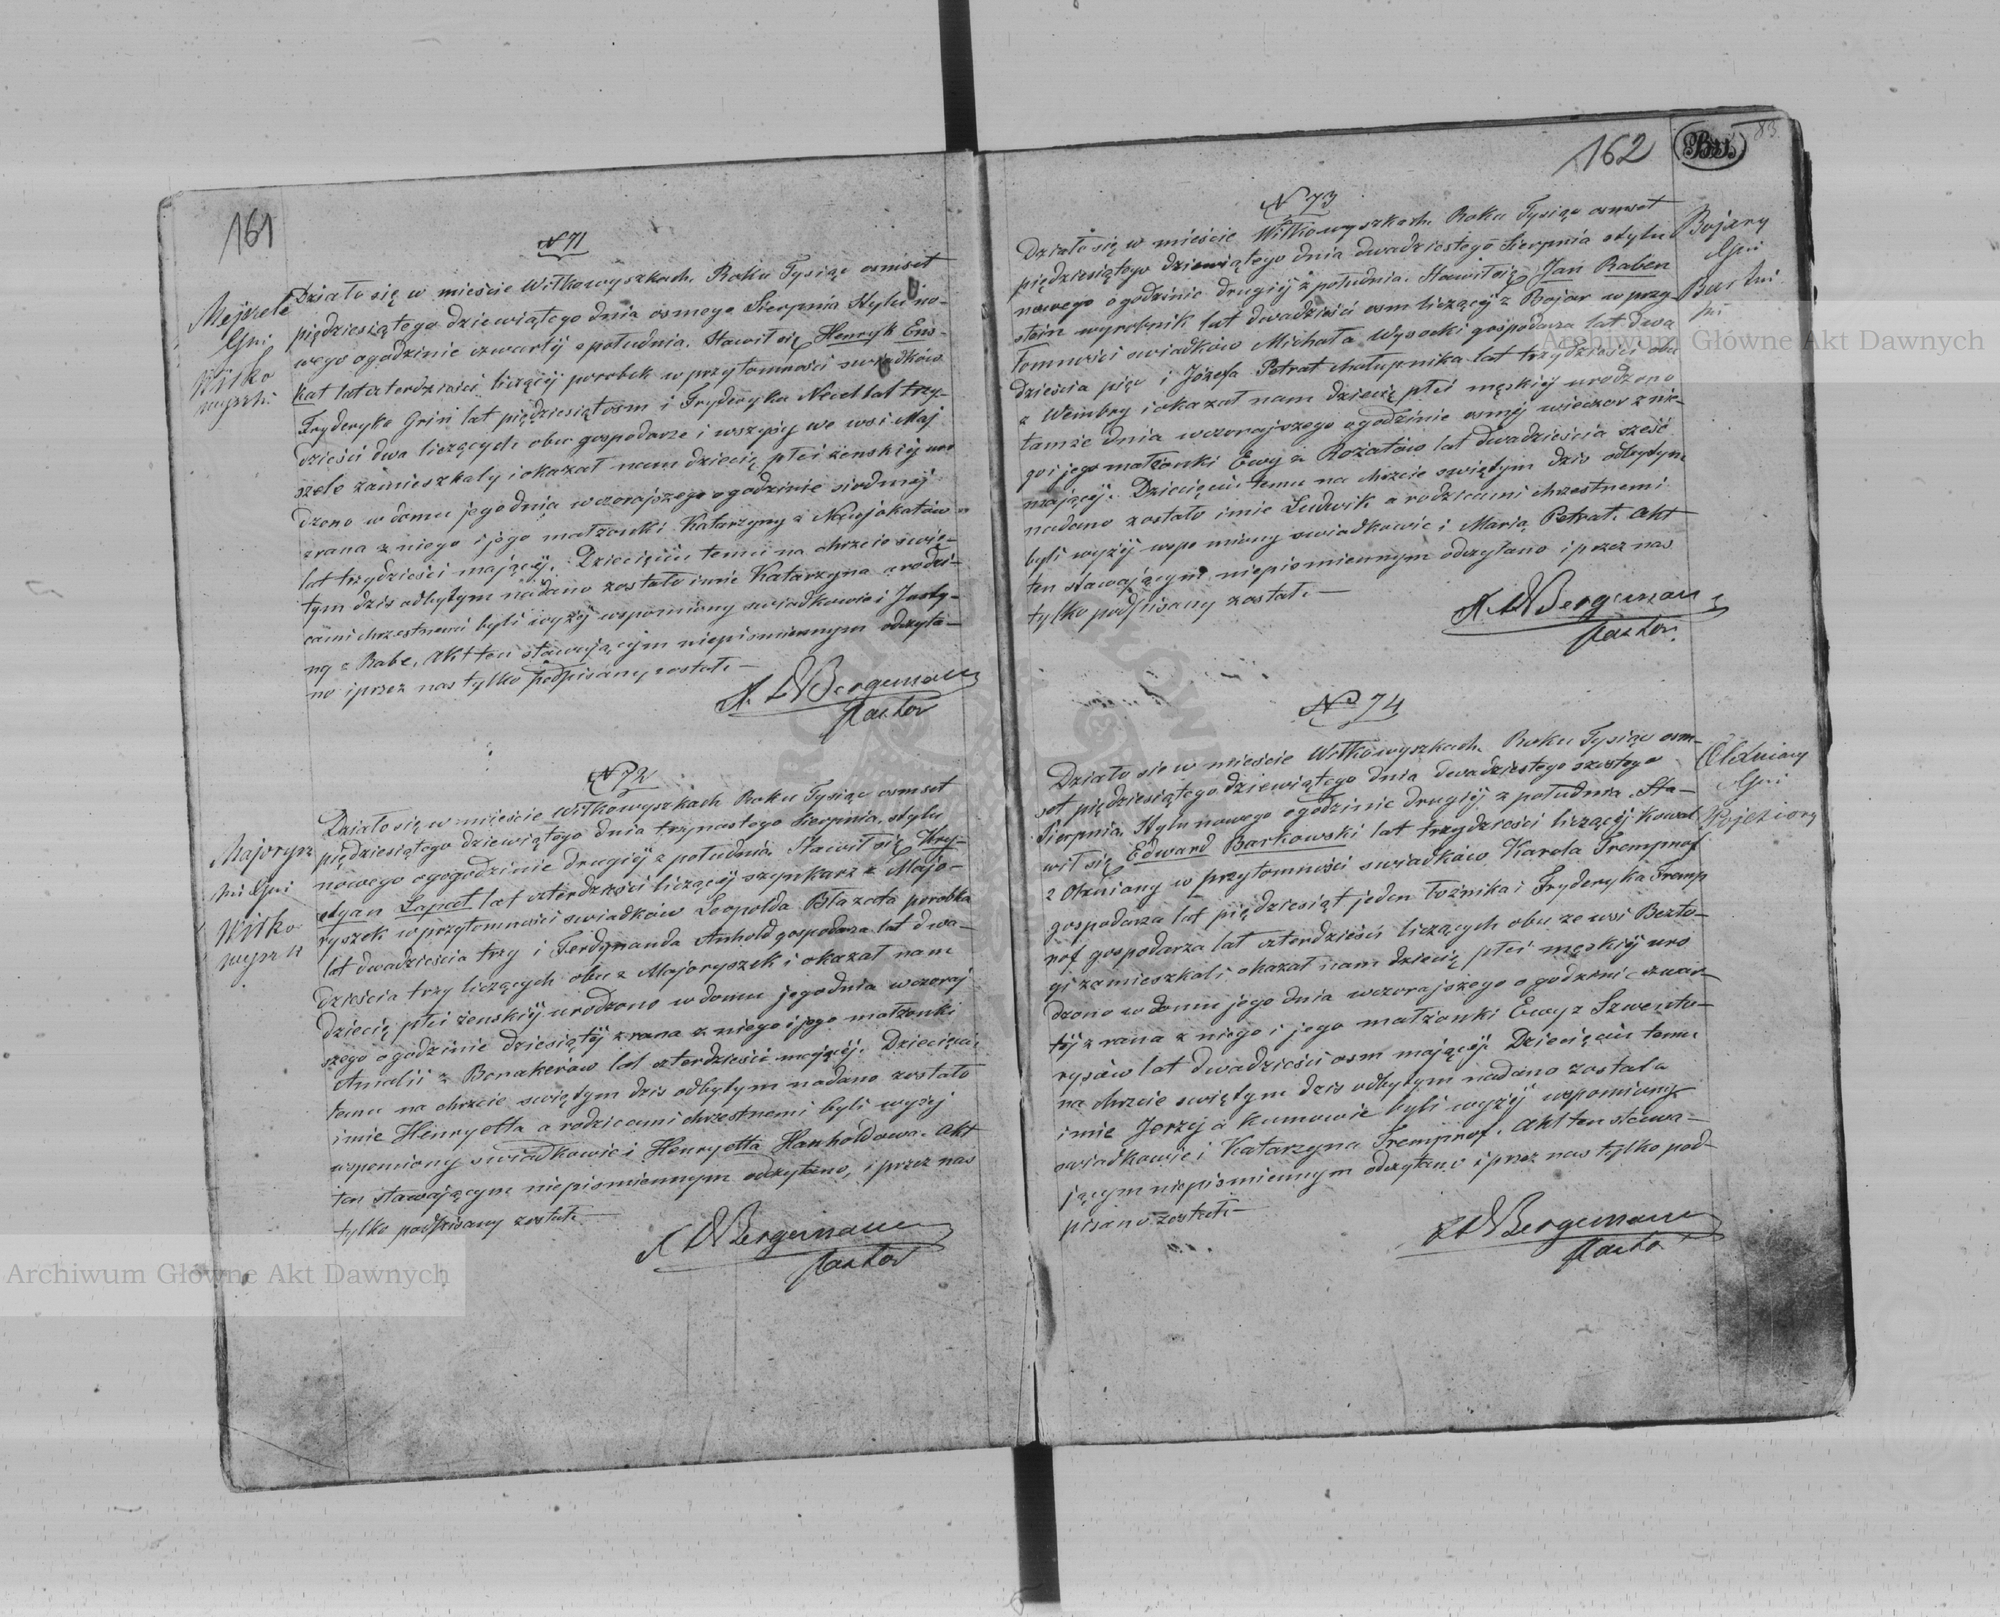 161
N 71
Mejszele
Gni
Wiłko
wyszki
Działo się w mieście Wiłkowyszkach. Roku Tysiąc osmset
piędziesiątego dziewiątego dnia osmego Sierpnia Stylu no-
wego ogodzinie czwartéj z południa. Stawił się Henryk Ens-
kat lat czterdzieści liczący parobek w przytomności swiadków
Fryderyka Grin lat piędziesiąt osm i Fryderyka Neuel lat trzy-
dzieści dwa liczących obu gospodarze i wszyscy we wsi Maj
szele zamieszkały i okazał nam dziecię płci żenskiéj uro
dzone w domu jego dnia wczorajszego o godzinie siodméj
zrana z niego i jego małżonki Katarzyny z Nawjokatów
lat trzydzieści mającéj. Dziecięciu temu na chrzcie swię-
tym dzis odbytym nadano zostało imie Katarzyna a rodzi-
cami chrzestnemi byli wyżéj wspomiony swiadkowie i Justy-
na z Rabe. Akt ten stawającym niepismiennym odczyta-
no i przez nas tylko podpisany został. —
A. W Bergemann
Pastor
N 72
Majorysz
ki Gni
Wiłko
wyszki
Działo się w mieście Wiłkowyszkach Roku Tysiąc osmset
piędziesiątego dziewiątego dnia trzynastego Sierpnia. stylu
nowego ogogodzinie drugiéj z południa. Stawił się Kry-
styan Lapat lat czterdzieści liczącéj szynkarz z Majo-
ryszek w przytomności swiadków Leopolda Błazata parobka
lat dwadzieścia trzy i Ferdynanda Anhold gospodarza lat dwa-
dzieścia trzy liczących obu z Majoryszek i okazał nam
dziecię płci żenskiéj urodzone w domu jego dnia wczoraj
szego o godzinie dziesiątéj z rana z niego i jego małżonki
Amalii z Bonakerów lat czterdzieści mającéj. Dziecięciu
temu na chrzcie swiętym dzis odbytym nadano zostało
imie Henryetta a rodzicami chrzestnemi byli wyzej
wspomiony swiadkowie i Henryetta Hanholdowa. Akt
ten stawającym niepismiennym odczytano, i przez nas
tylko podpisany został. —
A W Bergemann
Pastor
162
83
N 73
Bojary
Gni
Działo się w mieście Wiłkowyszkach. Roku Tysiąc osmset
piędziesiątego dziewiątego dnia dwadziestego Sierpnia stylu
nowego ogodzinie drugiéj z południa. Stawił się Jan Raben
stein wyrobnik lat dwadzieści osm liczącéj z Bojar w przy
tomności swiadków Michała Wysocki gospodarza lat dwa
dzieścia pięc i Józefa Petrat chałupnika lat trzydzieści obu
z Weinbry i okazał nam dziecię płci męskiéj urodzone
tamże dnia wczorajszego ogodzinie osméj wieczor z nie-
go i jego małżonki Ewy z Rozatów lat dwadzieścia szesć
mającéj. Dziecięciu temu na chrzcie swiętym dzis odbytym
nadano zostało imie Ludwik a rodzicami chrzestnemi
byli wyżéj wspomniony swiadkowie i Maria Petrat. Akt
ten stawającym niepismiennym odczytano i przez nas
tylko podpisany został. —
A. W Bergemann
Pastor.
N 74
Olxniany
Gni
Działo sie w mieście Wiłkowyszkach. Roku Tysiąc osm-
set piędziesiątego dziewiątego dnia dwadziestego szostego
Sierpnia. Stylu nowego ogodzinie drugiéj z południa. Sta-
wił się Edward Barkowski lat trzydzieści liczącéj. Kowal
z Olxniany w przytomności swiadków Karola Trempnof
gospodarza lat piędziesiąt jeden łoznika i Fryderyka Tremp
nof gospodarza lat czterdzieści liczących obu ze wsi Bezto-
gi zamieszkali okazał nam dziecię płci męskiéj uro
dzone w domu jego dnia wczorajszego o godzinie czwar
téj z rana z niego i jego małżonki Ewy z Szwento-
rysów lat dwadzieści osm mającéj. Dziecięciu temu
na chrzcie swiętym dzis odbytym nadano została
imie Jerzej a kumowie byli wyżéj wspomiony
swiadkowie i Katarzyna Trempnof. Akt ten stawa-
jącym niepismiennym odczytano i przez nas tylko pod
pisano został. —
A W Bergemann
Pasto
Archiwum Główne Akt Dawnych
Archiwum Główne Akt Dawnych